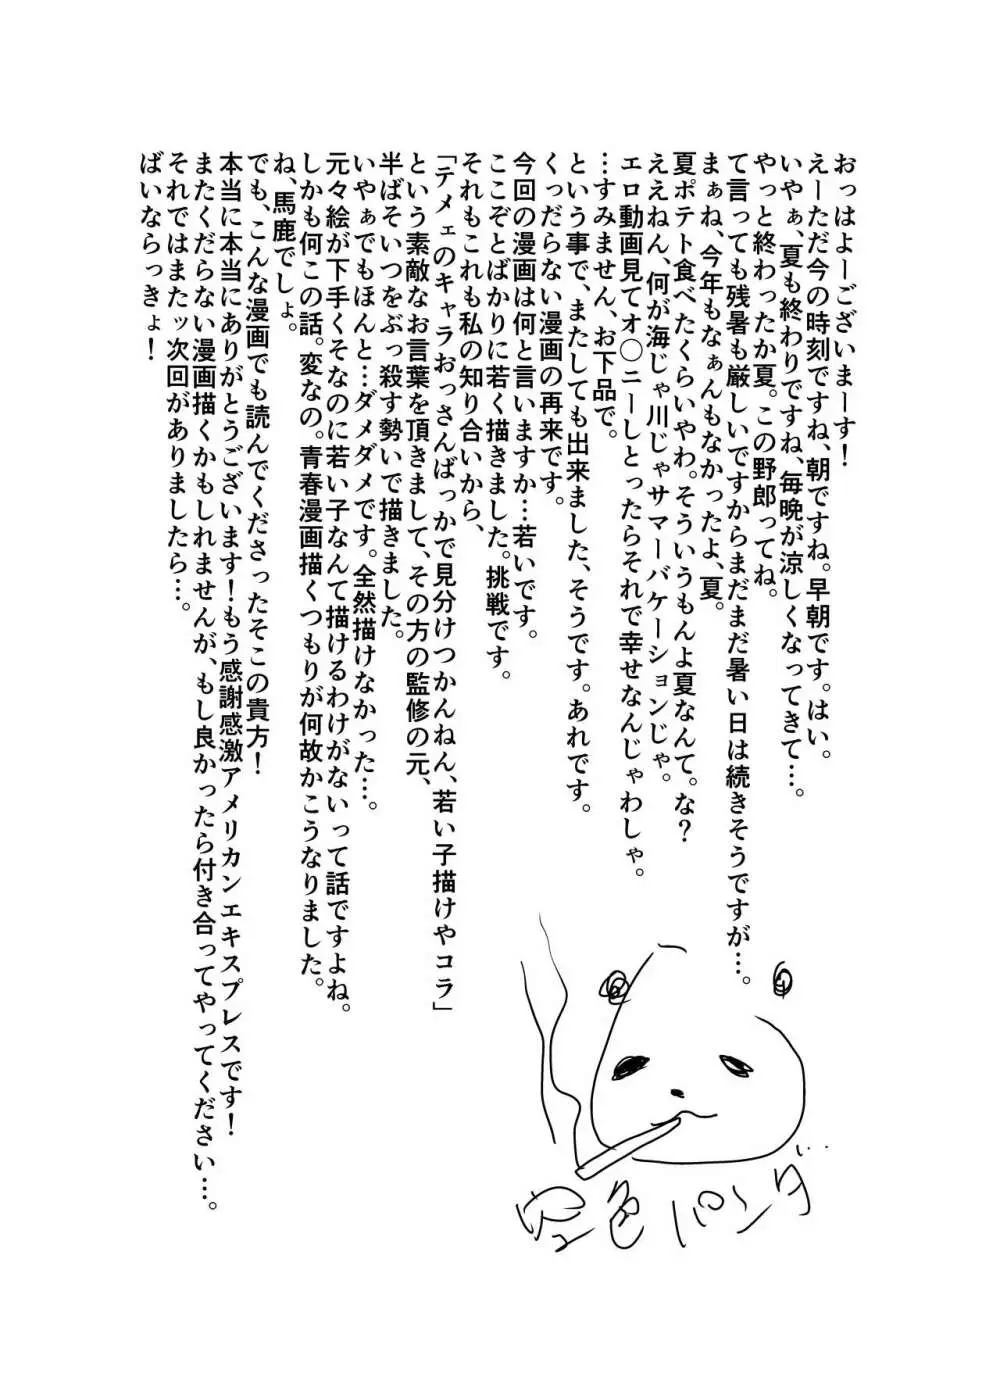 おっはよーございまーす！
えーただ今の時刻ですね、朝ですね。早朝です。はい。
いやぁ、夏も終わりですね、毎晩が涼しくなってきて…。
やっと終わったか夏。この野郎ってね。
て言っても残暑も厳しいですからまだまだ暑い日は続きそうですが…。
まぁね、今年もなぁんもなかったよ、夏。
夏ポテト食べたくらいやわ。そういうもんよ夏なんて。な？
ええねん、何が海じゃ川じゃサマーバケーションじゃ。
エロ動画見てオ〇ニーしとったらそれで幸せなんじゃわしゃ。
…すみません、お下品で。
という事で、またしても出来ました、そうです。あれです。
くっだらない漫画の再来です。
今回の漫画は何と言いますか…若いです。
ここぞとばかりに若く描きました。挑戦です。
それもこれも私の知り合いから、
「テメェのキャラおっさんばっかで見分けつかんねん、若い子描けやコラ」
という素敵なお言葉を頂きまして、その方の監修の元、
半ばそいつをぶっ殺す勢いで描きました。
いやぁでもほんと…ダメダメです。全然描けなかった…。
元々絵が下手くそなのに若い子なんて描けるわけがないって話ですよね。
しかも何この話。変なの。青春漫画描くつもりが何故かこうなりました。
ね、馬鹿でしょ。
でも、こんな漫画でも読んでくださったそこの貴方！
本当に本当にありがとうございます！もう感謝感激アメリカンエキスプレスです！
またくだらない漫画描くかもしれませんが、もし良かったら付き合ってやってください…。
それではまたッ次回がありましたら…。
ばいならっきょ！
空色パンダ…